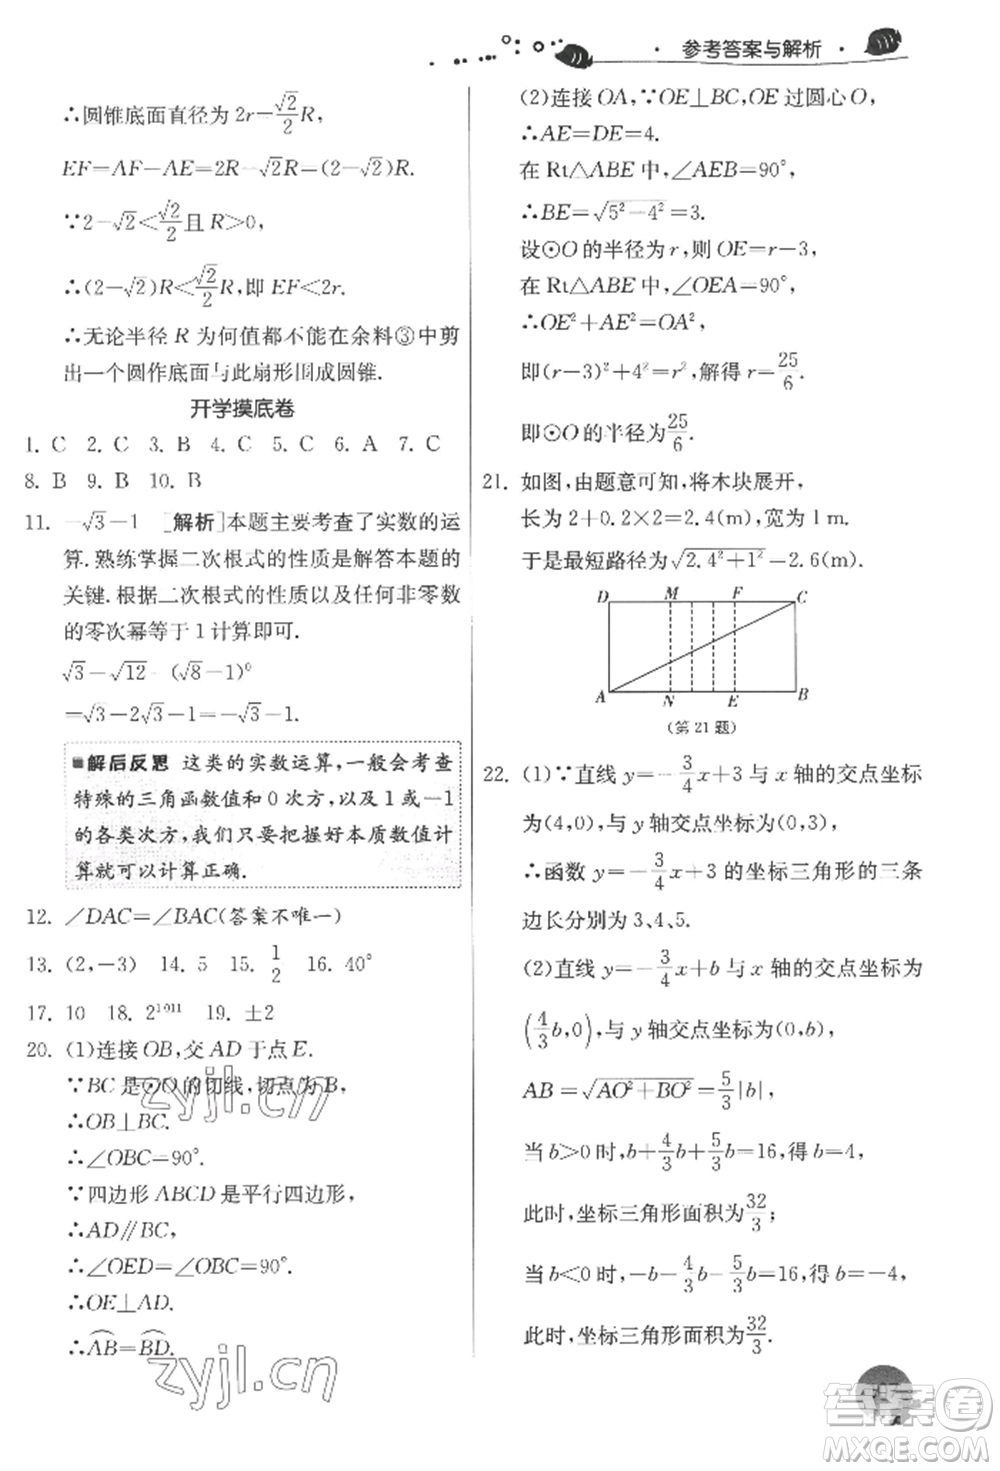 · 参考答案与解析 ·
∴圆锥底面直径为 2r=√2/2 R,
EF=AF−AE=2R−√2R=(2−√2)R.
∵2−√2<√2/2 且 R>0,
∴(2−√2)R<√2/2 R,即 EF<2r.
∴无论半径 R 为何值都不能在余料③中剪
出一个圆作底面与此扇形围成圆锥.
开学摸底卷
1. C 2. C 3. B 4. C 5. C 6. A 7. C
8. B 9. B 10. B
11. −√3−1 [解析]本题主要考查了实数的运
算.熟练掌握二次根式的性质是解答本题的
关键.根据二次根式的性质以及任何非零数
的零次幂等于 1 计算即可.
√3−√12−(√8−1)⁰
=√3−2√3−1=−√3−1.
■解后反思 这类的实数运算,一般会考查
特殊的三角函数值和 0 次方,以及 1 或−1
的各类次方,我们只要把握好本质数值计
算就可以计算正确.
12. ∠DAC=∠BAC(答案不唯一)
13. (2,−3) 14. 5 15. 1/2 16. 40°
17. 10 18. 2¹⁰¹¹ 19. ±2
20. (1)连接 OB,交 AD 于点 E.
∵BC 是⊙O 的切线,切点为 B,
∴OB⊥BC.
∴∠OBC=90°.
∵四边形 ABCD 是平行四边形,
∴AD∥BC,
∴∠OED=∠OBC=90°.
∴OE⊥AD.
∴AB⌒=BD⌒.
(2)连接 OA,∵OE⊥BC,OE 过圆心 O,
∴AE=DE=4.
在 Rt△ABE 中,∠AEB=90°,
∴BE=√(5²−4²)=3.
设⊙O 的半径为 r,则 OE=r−3,
在 Rt△ABE 中,∠OEA=90°,
∴OE²+AE²=OA²,
即(r−3)²+4²=r²,解得 r=25/6.
即⊙O 的半径为25/6.
21. 如图,由题意可知,将木块展开,
长为 2+0.2×2=2.4(m),宽为 1 m.
于是最短路径为√(2.4²+1²)=2.6(m).
D M F C
A N E B
(第 21 题)
22. (1)∵直线 y=−3/4 x+3 与 x 轴的交点坐标
为(4,0),与 y 轴交点坐标为(0,3),
∴函数 y=−3/4 x+3 的坐标三角形的三条
边长分别为 3、4、5.
(2)直线 y=−3/4 x+b 与 x 轴的交点坐标为
(4/3 b,0),与 y 轴交点坐标为(0,b),
AB=√(AO²+BO²)=5/3|b|,
当 b>0 时,b+4/3 b+5/3 b=16,得 b=4,
此时,坐标三角形面积为32/3;
当 b<0 时,−b−4/3 b−5/3 b=16,得 b=−4,
此时,坐标三角形面积为32/3.
zyjl.cn
zyjl.cn
答案卷
MXQE.COM